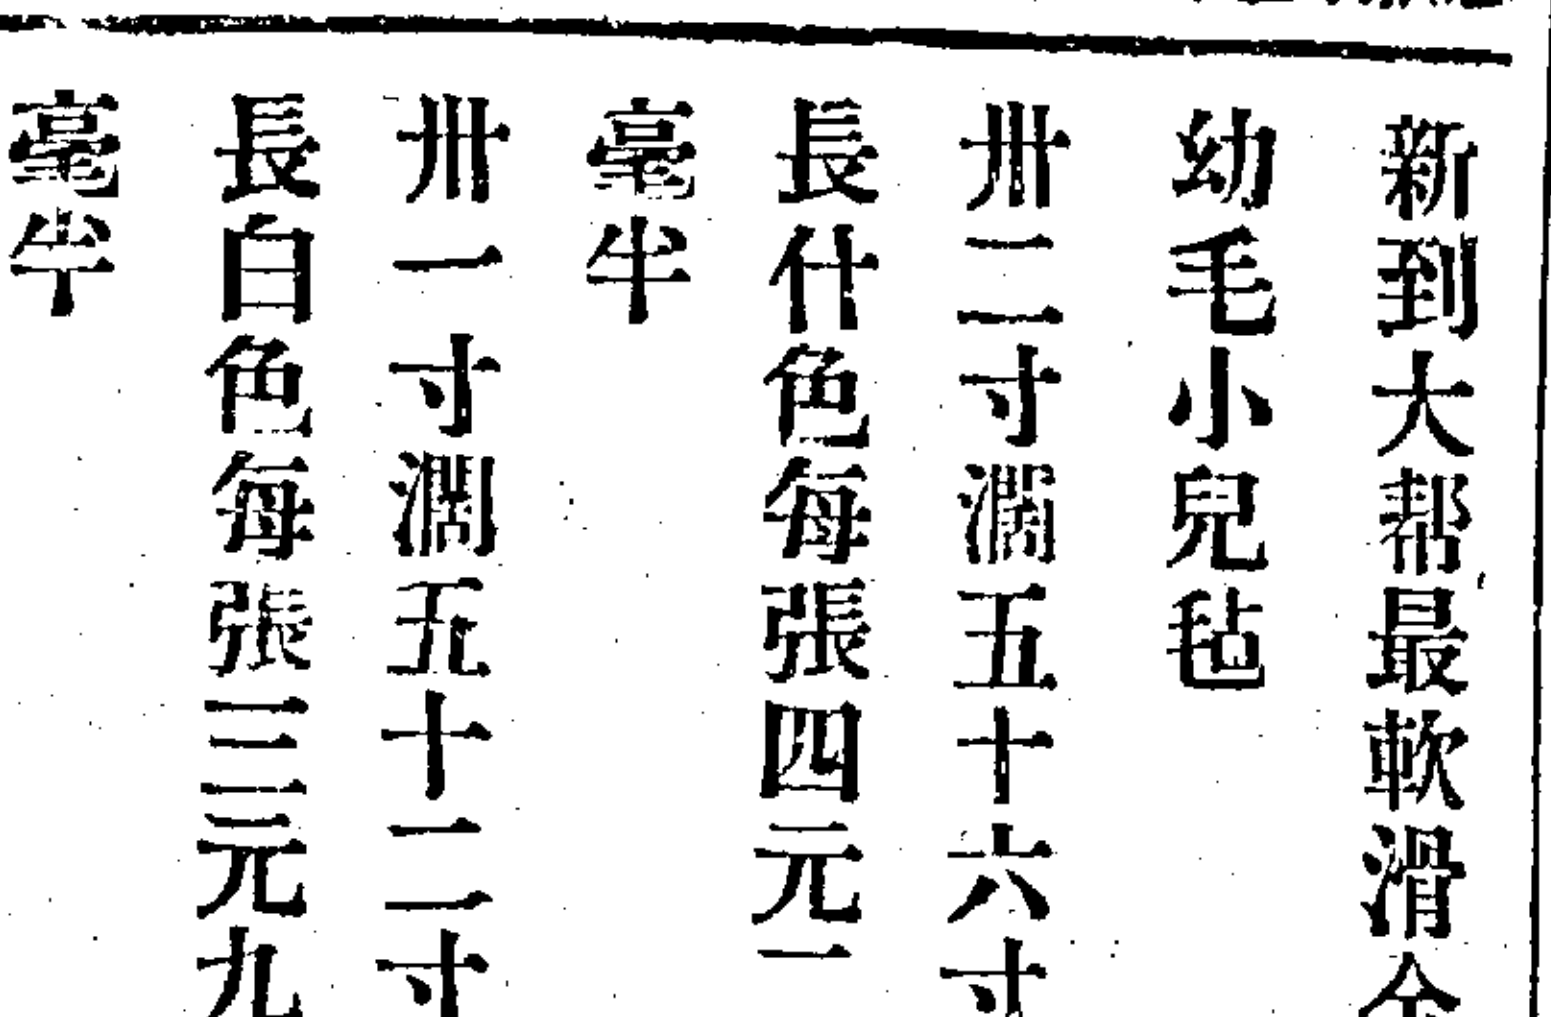 新到大帮最軟滑全
幼毛小兒毡
卅二寸濶五十六寸
長什色每張四元一
毫半
卅一寸濶五十二寸
長白色每張三元九
毫半